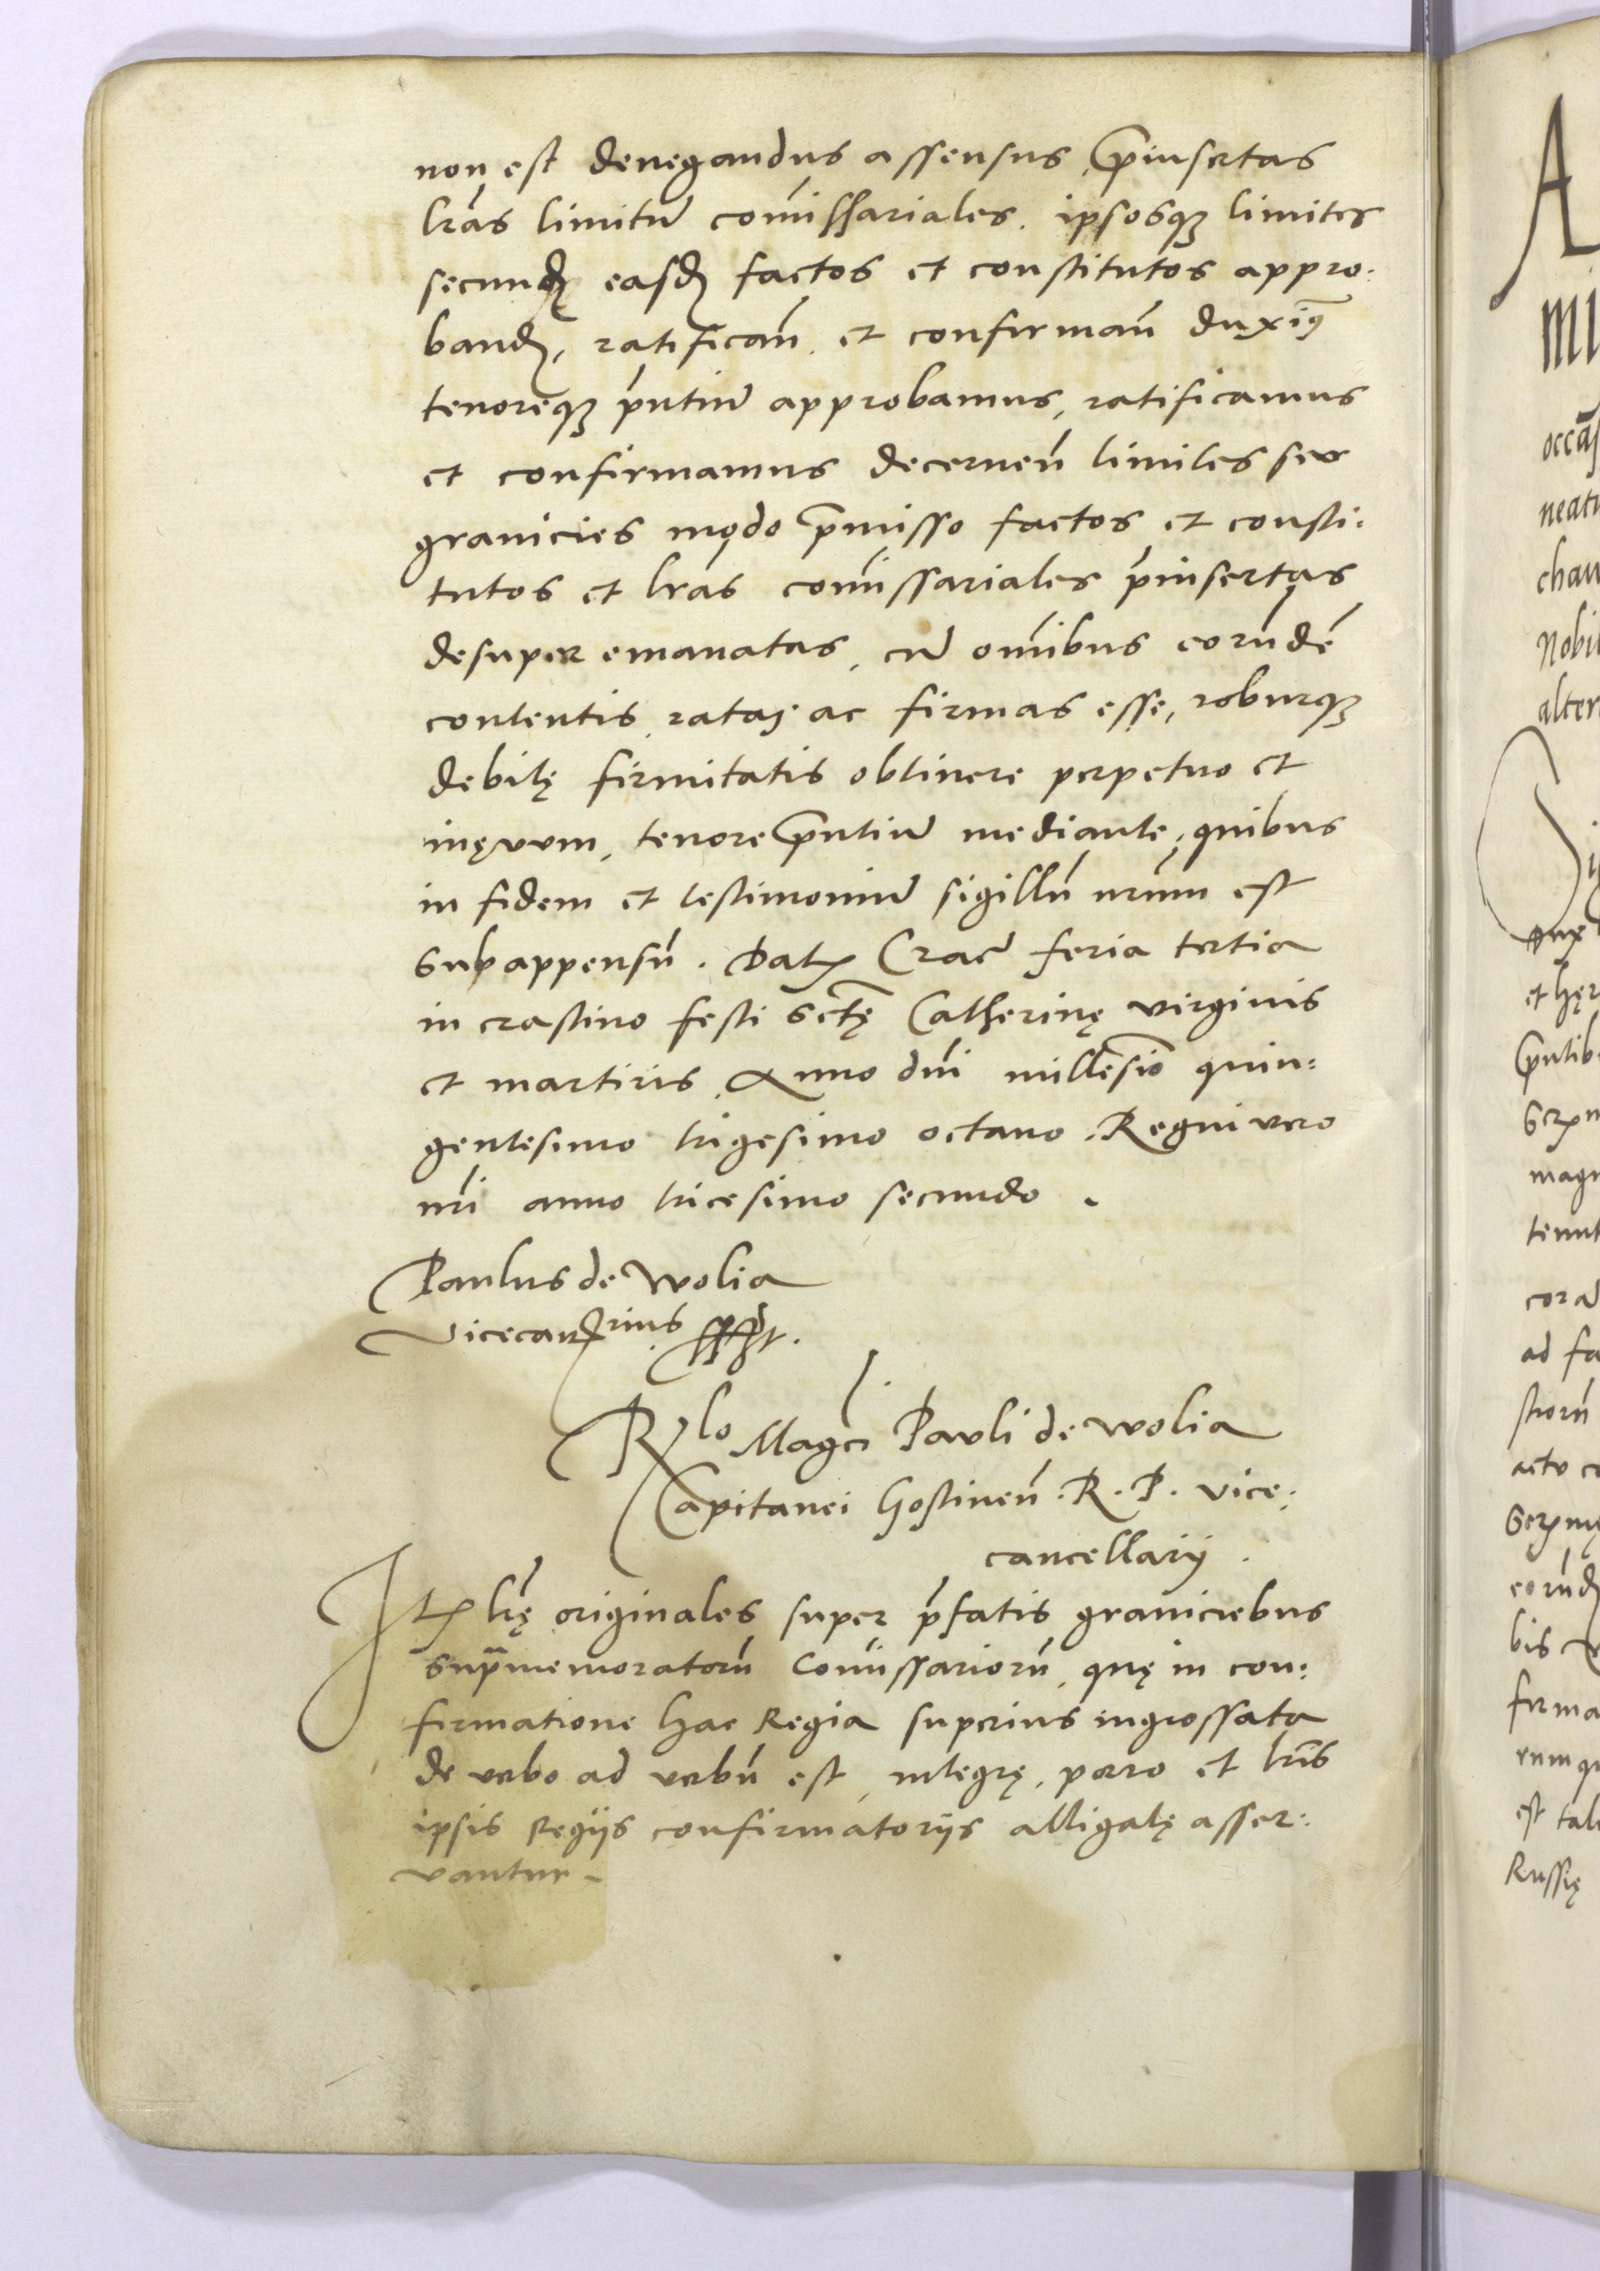 non est denegandus assensus, p̄insertas
lr̄as limitū com̄issariales. ipsosqꝫ limites
secundꝫ easdꝫ factos et constitutos appro:
bandꝫ, ratifican̄ et confirman̄ duxim⁹
tenoreqꝫ p̄ntiū approbamus, ratificamus
et confirmamus decernen̄ limites seu
granicies modo p̄misso factos et consti:
tutos et lr̄as com̄issariales p̄insertas
desuper emanatas, cū om̄ibus eorundē
contentis ratas ac firmas esse, roburqꝫ
debitę firmitatis obtinere perpetuo et
inęvvm, tenore p̄ntiū mediante, quibus
in fidem et testimoniū sigillū nr̄um est
subappensū. Datꝫ Crac̄ feria tertia
in crastino festi sctę̄ Catherinę virginis
et martiris, Anno dn̄i millesīo quin:
gentesimo trigesimo octavo. Regni vero
nr̄i anno tricesimo secundo.
Paulus de Wolia
Vicecancꝫrius sspt.
Rlo Magci Pavli de wolia
Capitanei Gostinen̄. R. P. vice:
cancellarij.
Itꝫ lr̄ę originales super p̄fatis graniciebus
sup̄memoratorū Com̄issariorū, quę in con:
firmatione hac Regia superius ingrossata
de verbo ad verbū est, integrę, porro et lr̄is
ipsis Regiis confirmatoriis alligatę asser:
vantur.
A
MI
neat
chan
Nobil
alter
et hęr
magn
ad fa
bis
firma
est tal
Russię